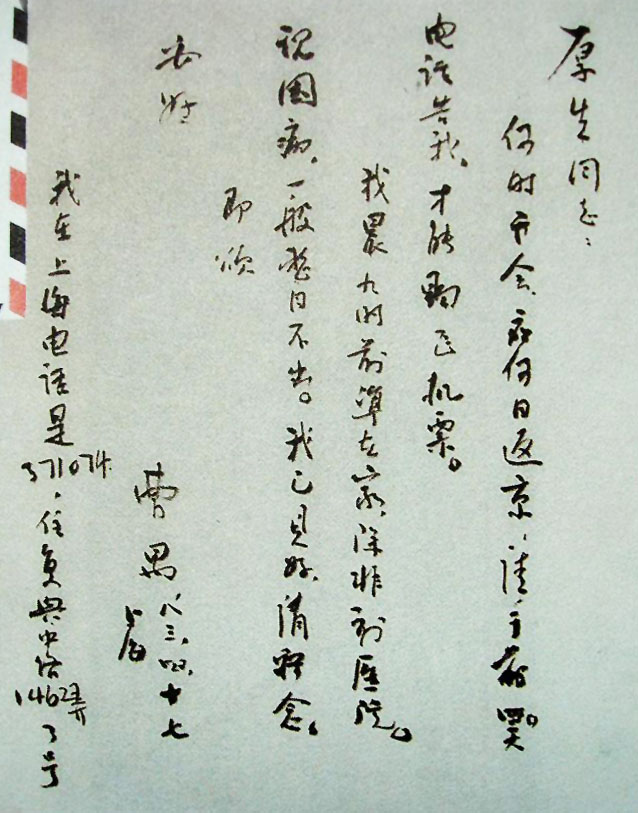 厚生同志：
何时开会，我何日返京，请于前
电话告我，才能购飞机票。
我晨九时前准在家，除非到医院。
视国病，一般整日不出。我已见好，请释念。
即颂
安好
曹禺 八三、四、十七
上海
我在上海电话是371074，住复兴中路1462弄3号